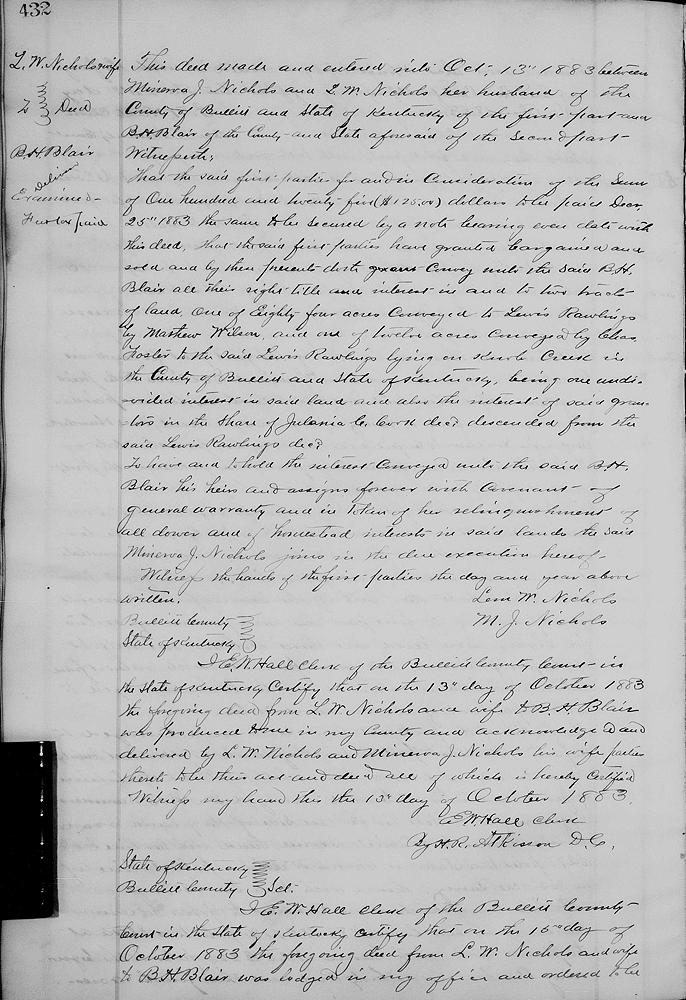 432
L. W. Nichols & wife
To } Deed
B. H. Blair
Examined
Deliver
Fu & tax paid
This deed made and entered into Oct. 13" 1883 between
Minerva J. Nichols and L. W. Nichols her husband of the
County of Bullitt and State of Kentucky of the first part and
B. H. Blair of the County and State aforesaid of the Second part
Witnesseth;
That the said first parties for and in Consideration of the Sum
of One hundred and twenty-five ($125,00) dollars to be paid Decr
25" 1883 the same to be secured by a note bearing even date with
this deed, that the said first parties have granted bargained and
sold and by these presents doth grant Convey unto the said B. H.
Blair all their right title and interest in and to two tracts
of land, one of Eighty four acres Conveyed to Lewis Rawlings
by Mathew Wilson, and one of twelve acres Conveyed by Chas
Foster to the said Lewis Rawlings lying on Knob Creek in
the County of Bullitt and State of Kentucky, being one undi-
-vided interest in said land and also the interest of said gran-
-tors in the Share of C. Cook decd descended from the
said Lewis Rawlings decd
To have and to hold the interest Conveyed unto the said B. H.
Blair his heirs and assigns forever with Covenant of
general warranty and in token of her relinquishment of
all dower and of homestead interests in said lands the said
Minerva J. Nichols joins in the due execution hereof-
Witness the hands of the first parties the day and year above
written.
Lem W. Nichols
M. J. Nichols
Bullitt County }
State of Kentucky }
I E. W. Hall Clerk of the Bullitt County Court in
the State of Kentucky Certify that on the 13" day of October 1883
the foregoing deed from L. W. Nichols and wife to B. H. Blair
was produced to me in my County and acknowledged and
delivered by L. W. Nichols and Minerva J. Nichols his wife parties
thereto to be their act and deed all of which is hereby Certified
Witness my hand this the 13" day of October 1883.
E W Hall Clerk
By H. R. Atkisson D. C.
State of Kentucky }
Bullitt County } Sct.
I E. W. Hall Clerk of the Bullitt County
Court in the State of Kentucky certify that on the 15" day of
October 1883 the foregoing deed from L. W. Nichols and wife
to B. H. Blair was lodged in my office and ordered to be